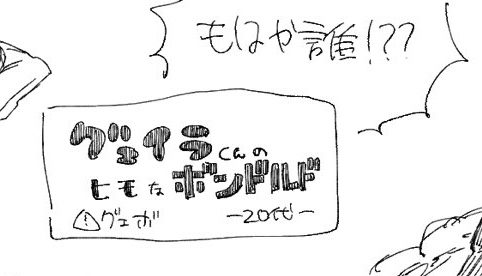 もはや誰!??
グェイラくんの
ヒモなボンドルド
⚠グェボ －20代－